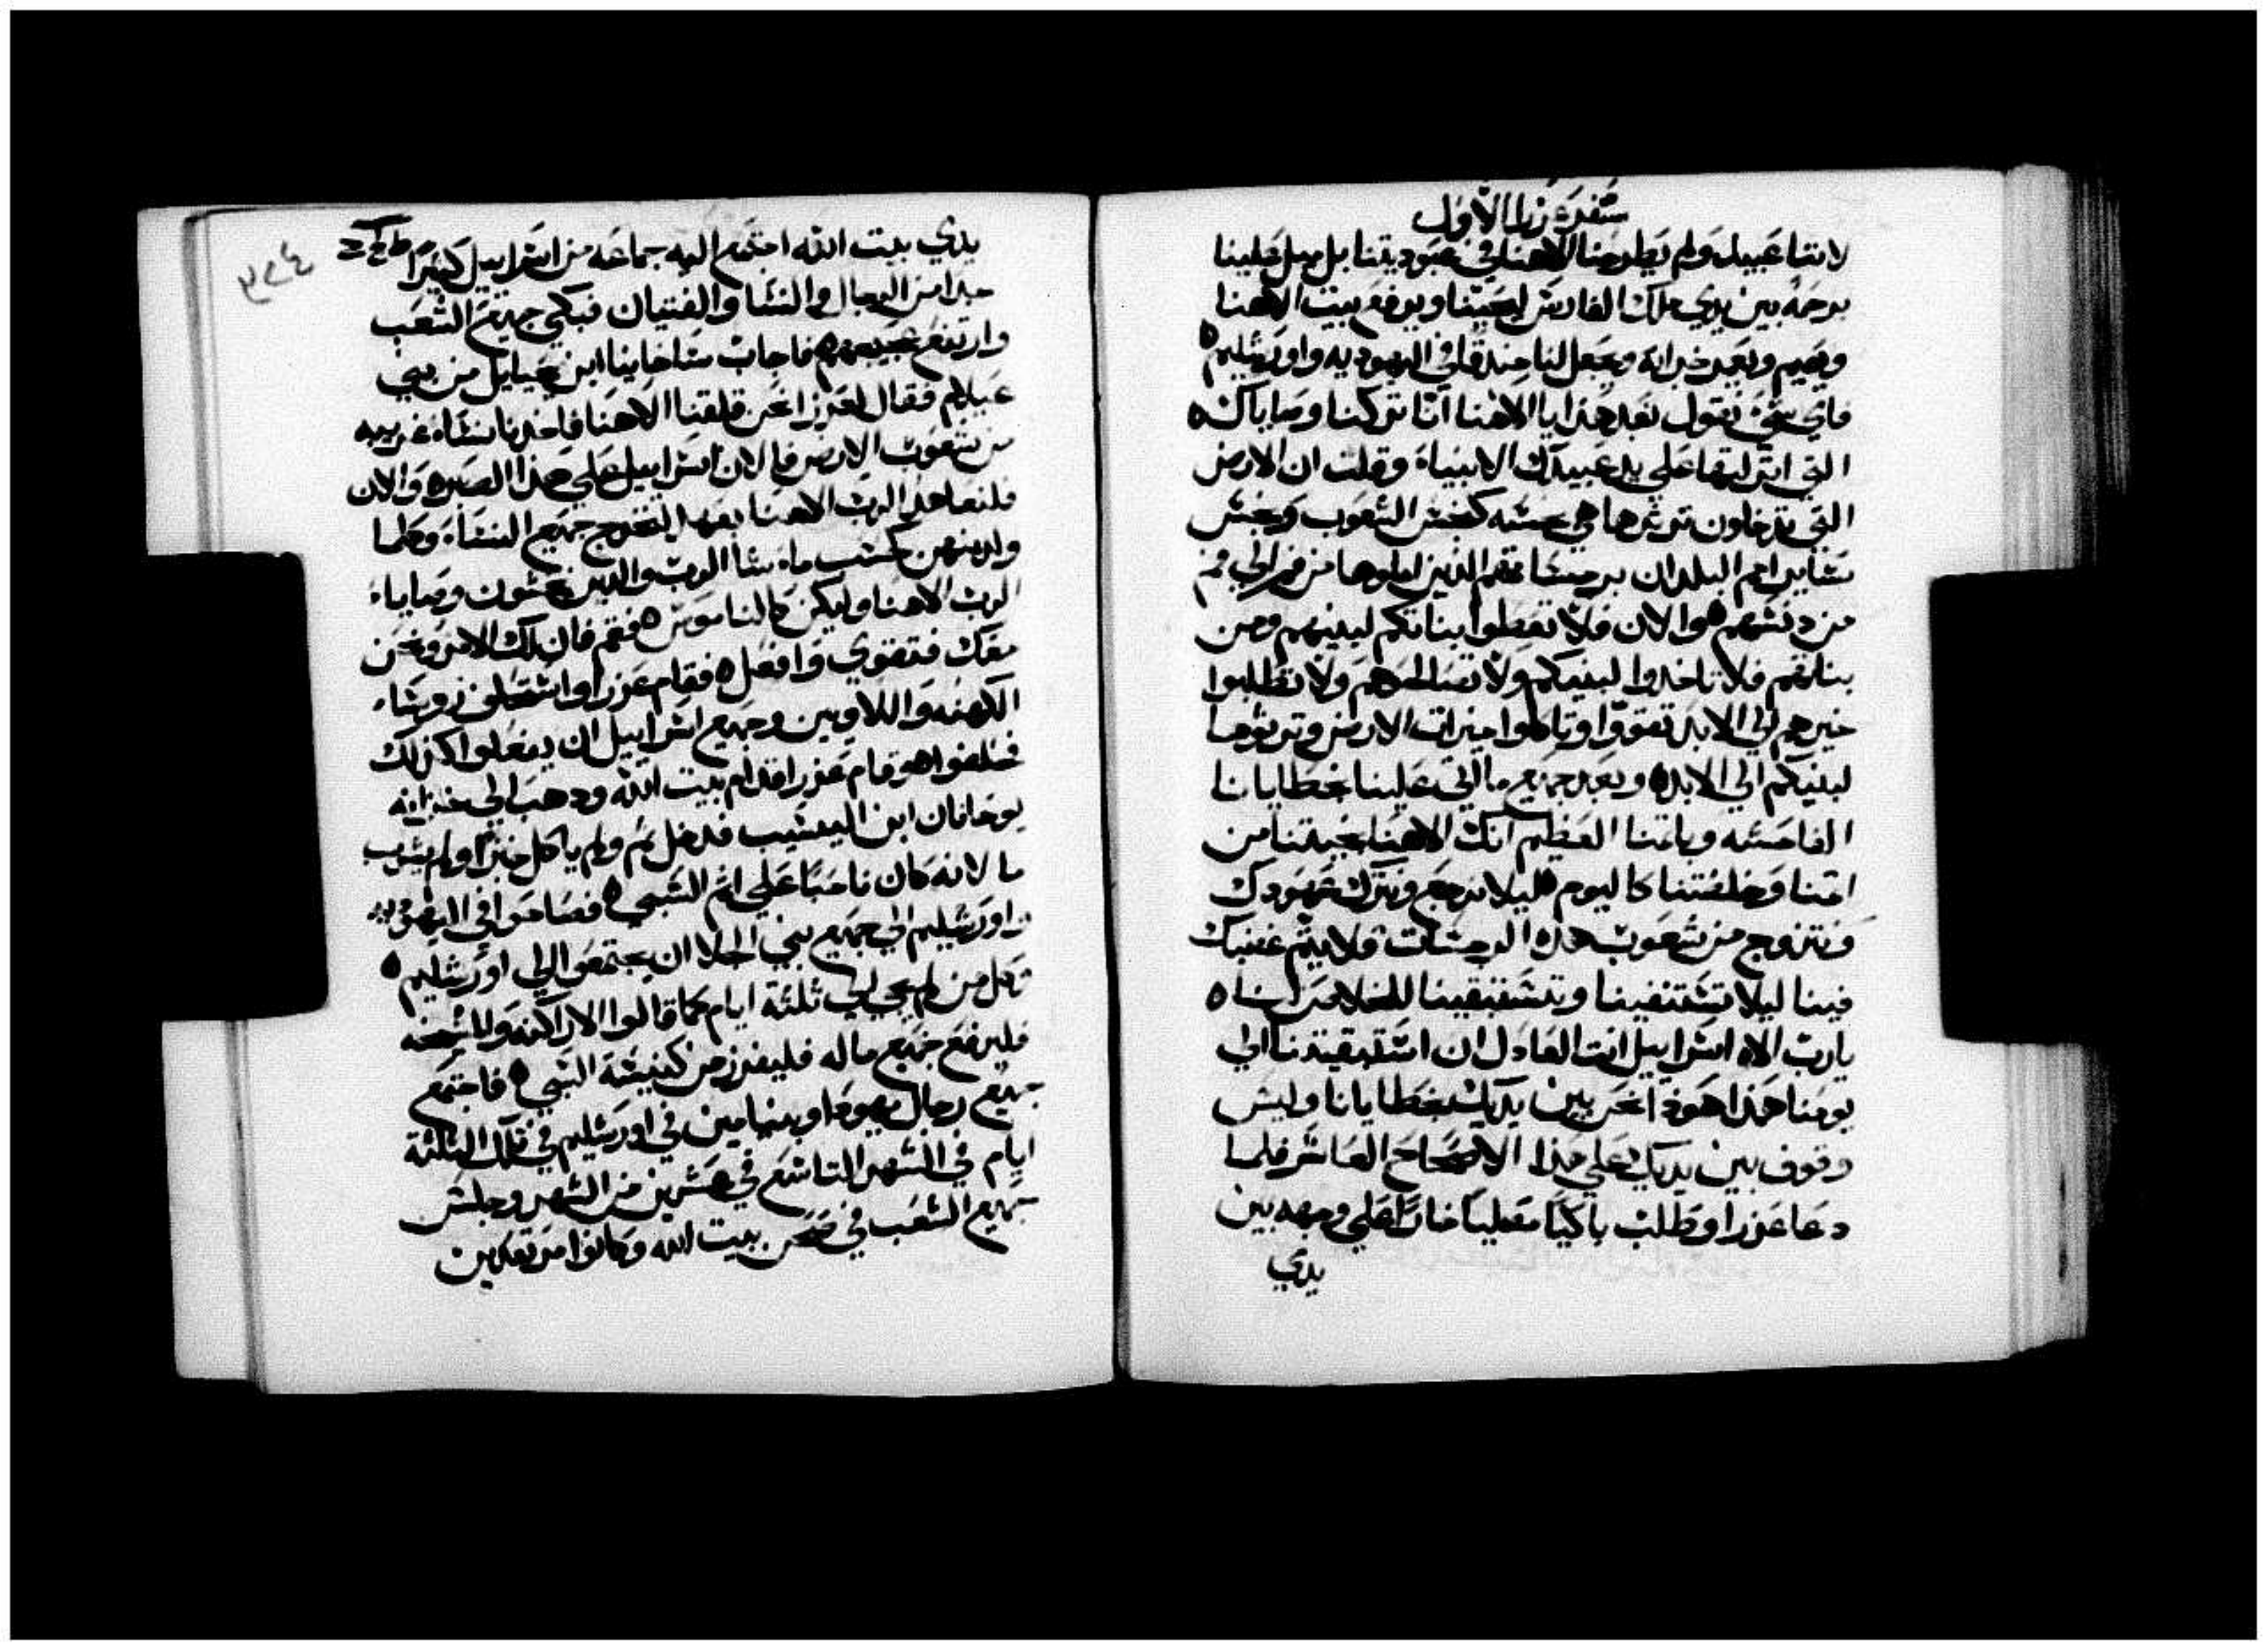 سفر عزرا الاول
لاننا عبيد ولم يطرحنا الاهنا في عبوديتنا بل ميل علينا
برحمه بين يدي ملك الفارس ليحيينا ويرفع بيت الاهنا
ويقيم ويعيد خرابه ويجعل لنا في اليهوديه واورشليم
فاي شي نقول بعد هذا يا الاهنا اننا تركنا وصاياك
التي علي يد عبيدك الانبياء وقلت ان الارض
التي تدخلون ترثوها هي نجسه كنجس الشعوب ونجس
ساير امم البلدان الذين من فم الي فم
من دنسهم والان فلا تعطوا بناتكم لبنيهم ومن
بناتهم فلا تاخدوا لبنيكم ولا تصالحوهم ولا تطلبوا
خيرهم الي الابد تقووا وتاكلوا خيرات الارض وترثوها
لبنيكم الي الابد وبعد جميع ما اتي علينا بخطايانا
الفاحشه وباثمنا العظيم انك الاهنا نجيتنا من
اثمنا وخلصتنا كاليوم ليلا نرجع ونترك عهودك
ونتزوج من شعوب هذه فلا يتم غضبك
فينا ليلا
يارب الاه اسراييل انت العادل ان الي
يومنا هذا هوذا نحن بين يديك بخطايانا وليس
وقوف بين يديك علي هذا الاصحاح العاشر فلما
دعا عزرا وطلب باكيا مصليا علي وجهه بين
يدي
٣٢٤
يدي بيت الله اجتمع اليه جماعه من اسراييل كثيرا
جدا من الرجال والنسا والفتيان فبكي جميع الشعب
وارتفع فاجاب ساخانيا ابن من بني
عيلام فقال لعزرا نحن الاهنا فاخدنا نساء غريبه
من شعوب الارض فالان اسراييل علي هذا والان
فلنعاهد الرب الاهنا عهدا لنخرج جميع النساء وكلما
ولد منهن كحسب ما شا الرب والدين وصاياء
الرب الاهنا وليكن كالناموس فقم فان لك الامر ونحن
معك فتقوي وافعل فقام عزرا واستحلف روساء
الكهنه واللاويين وجميع اسراييل ان يفعلوا كذلك
فحلفوا قام عزرا قدام بيت الله ودهب الي خزانه
يوحانان ابن اليشيب فدخل ثم ولم ياكل خبزا ولم يشرب
ما لانه كان ناحبا علي اثم السبي في اليهوديه
واورشليم الي جميع بني الجلا ان يجتمعوا الي اورشليم
وكل من لم يجي الي ثلثة ايام كما قالوا الاراكنه
فليرفع جميع ماله فليفرز من كنيسة السبي فاجتمع
جميع رجال يهودا وبنيامين في اورشليم في تلك الثلثة
ايام في الشهر التاسع في عشرين من الشهر وجلس
جميع الشعب في صحن بيت الله وكانوا مرتعدين